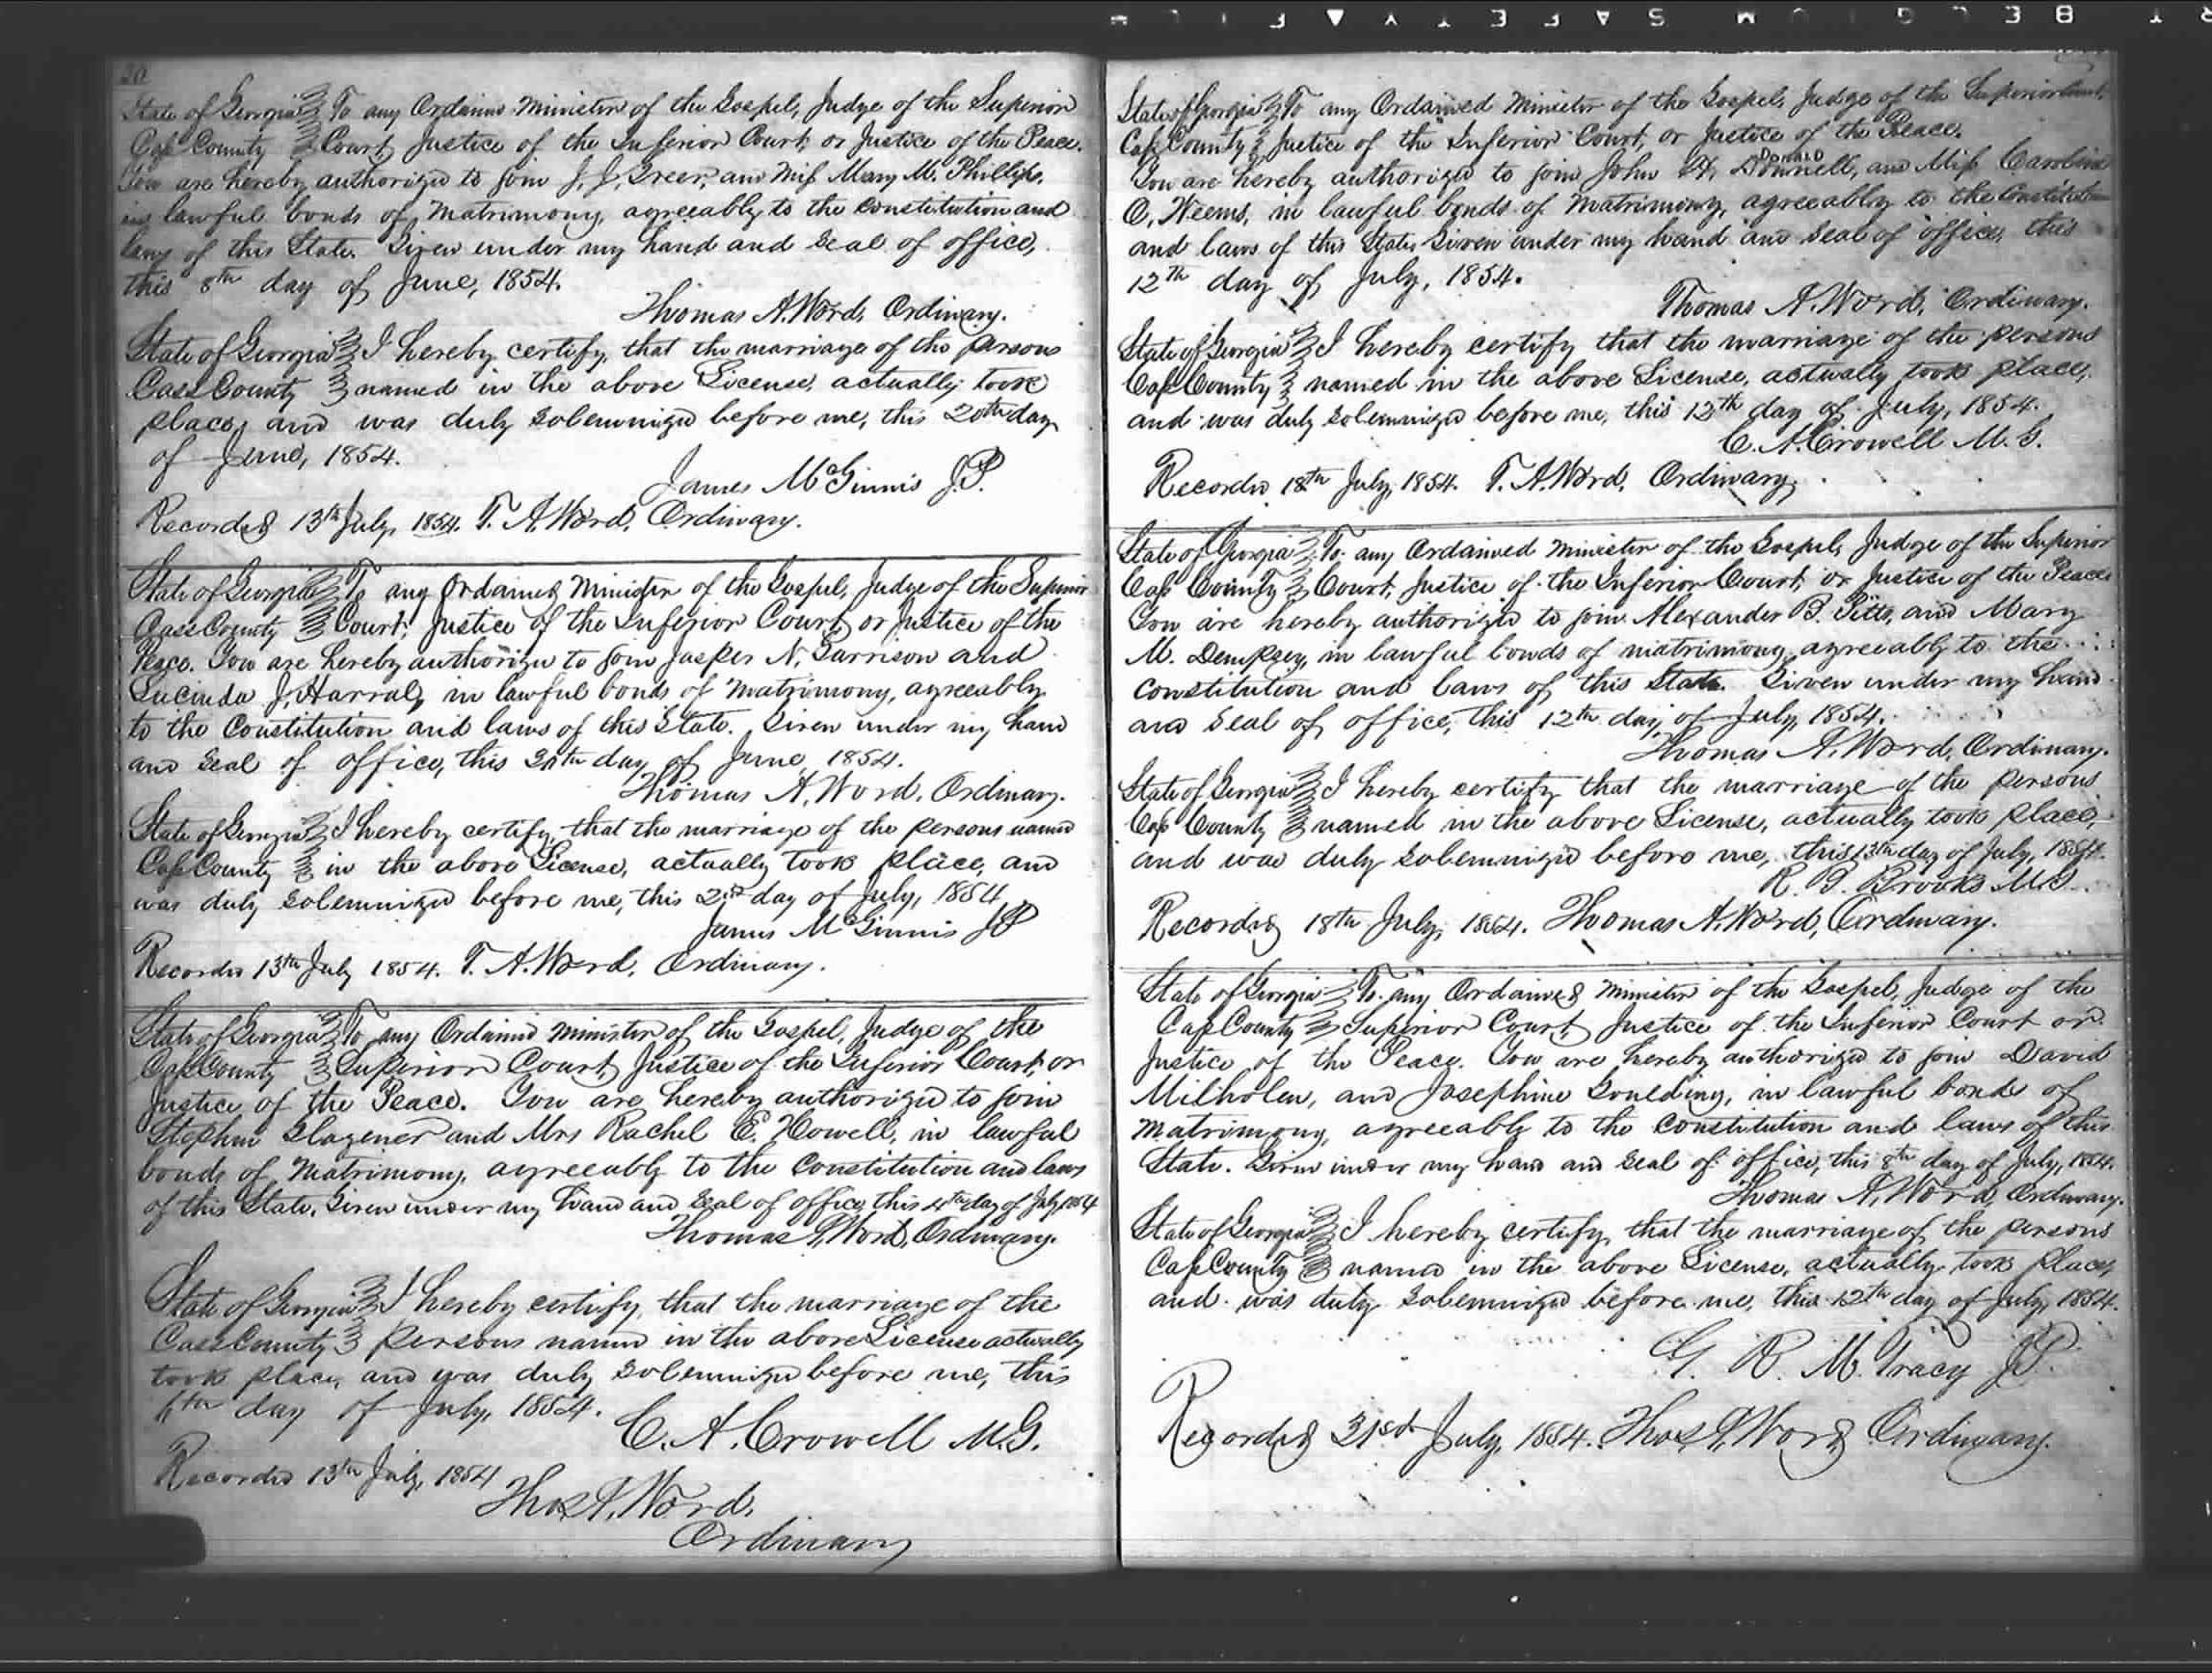 20
State of Georgia To any Ordained Minister of the Gospel, Judge of the Superior
Cass County Court, Justice of the Inferior Court, or Justice of the Peace.
You are hereby authorized to join J. J. Greer, and Miss Mary M. Phillips,
in lawful bonds of Matrimony, agreeably to the constitution and
laws of this State. Given under my hand and seal of office,
this 8th day of June, 1854.
Thomas A. Word, Ordinary.
State of Georgia I hereby certify, that the marriage of the persons
Cass County named in the above License, actually took
place, and was duly solemnized before me, this 20th day
of June, 1854.
James McGinnis J.P.
Recorded 13th July, 1854. T. A. Word, Ordinary.
State of Georgia To any Ordained Minister of the Gospel, Judge of the Superior
Cass County Court, Justice of the Inferior Court, or Justice of the
Peace. You are hereby authorized to join Jasper N. Garrison and
Lucinda J. Harral, in lawful bonds of Matrimony, agreeably
to the Constitution and laws of this State. Given under my hand
and seal of office, this day of June, 1854.
Thomas A. Word, Ordinary.
State of Georgia I hereby certify, that the marriage of the persons named
Cass County in the above License, actually took place, and
was duly solemnized before me, this 2nd day of July, 1854
James McGinnis JP
Recorded 13th July 1854. T. A. Word, Ordinary.
State of Georgia To any Ordained Minister of the Gospel, Judge of the
Cass County Superior Court, Justice of the Inferior Court, or
Justice of the Peace. You are hereby authorized to join
Stephen Glazener and Mrs Rachel E. Howell, in lawful
bonds of Matrimony, agreeably to the Constitution and laws
of this State. Given under my hand and seal of office, this 4th day of July, 1854
Thomas A. Word, Ordinary.
State of Georgia I hereby certify, that the marriage of the
Cass County persons named in the above License actually
took place, and was duly solemnized before me, this
6th day of July, 1854.
C. A. Crowell M.G.
Recorded 13th July, 1854
Thos A. Word,
Ordinary
State of Georgia To any Ordained Minister of the Gospel, Judge of the Superior Court,
Cass County Justice of the Inferior Court, or Justice of the Peace.
Donald
You are hereby authorized to join John H. Donnell, and Miss Caroline
O. Weems, in lawful bonds of Matrimony, agreeably to the Constitution
and laws of this State, Given under my hand and seal of office, this
12th day of July, 1854.
Thomas A. Word, Ordinary.
State of Georgia I hereby certify that the marriage of the persons
Cass County named in the above License, actually took place,
and was duly solemnized before me, this 12th day of July, 1854.
C. A. Crowell M. G.
Recorded 18th July, 1854. T. A. Word, Ordinary.
State of Georgia To any Ordained Minister of the Gospel, Judge of the Superior
Cass County Court, Justice of the Inferior Court, or Justice of the Peace
You are hereby authorized to join Alexander B. Pitts, and Mary
M. Dempsey, in lawful bonds of matrimony, agreeably to the
constitution and laws of this State. Given under my hand
and seal of office, this 12th day of July, 1854.
Thomas A. Word, Ordinary.
State of Georgia I hereby certify that the marriage of the persons
Cass County named in the above License, actually took place,
and was duly solemnized before me, this 13th day of July, 1854.
R. G. Brooks M.G.
Recorded 18th July, 1854. Thomas A. Word, Ordinary.
State of Georgia To any Ordained Minister of the Gospel, Judge of the
Cass County Superior Court, Justice of the Inferior Court or
Justice of the Peace. You are hereby authorized to join David
Milholen, and Josephine Goulding, in lawful bonds of
Matrimony, agreeably to the constitution and laws of this
State. Given under my hand and seal of office, this 8th day of July, 1854.
Thomas A. Word, Ordinary.
State of Georgia I hereby certify, that the marriage of the persons
Cass County named in the above License, actually took place,
and was duly solemnized before me, this 12th day of July, 1854.
G. R. M. Tracy J.P.
Recorded 31st July, 1854. Thos A. Word Ordinary.